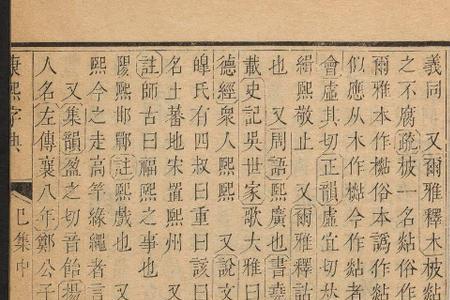 義同　又爾雅釋木柀
之不腐疏柀一名煔俗作
爾雅本作檆俗本譌作煔
似應从木作檆今作煔者
會虛其切正韻虛宜切𠀤
緝熙敬止　又爾雅釋詁
也　又周語熙廣也書堯
載史記吳世家歌大雅曰
德經衆人熙熙　又說文
皥氏有四叔曰重曰該曰
名土蕃地宋置熙州　又
註師古曰福熙之事也
陽熙邯鄲註熙戲也　又
熙今之走高竿緣繩者言
又集韻盈之切音飴揚
人名左傳襄八年鄭公子
康熙字典　巳集中